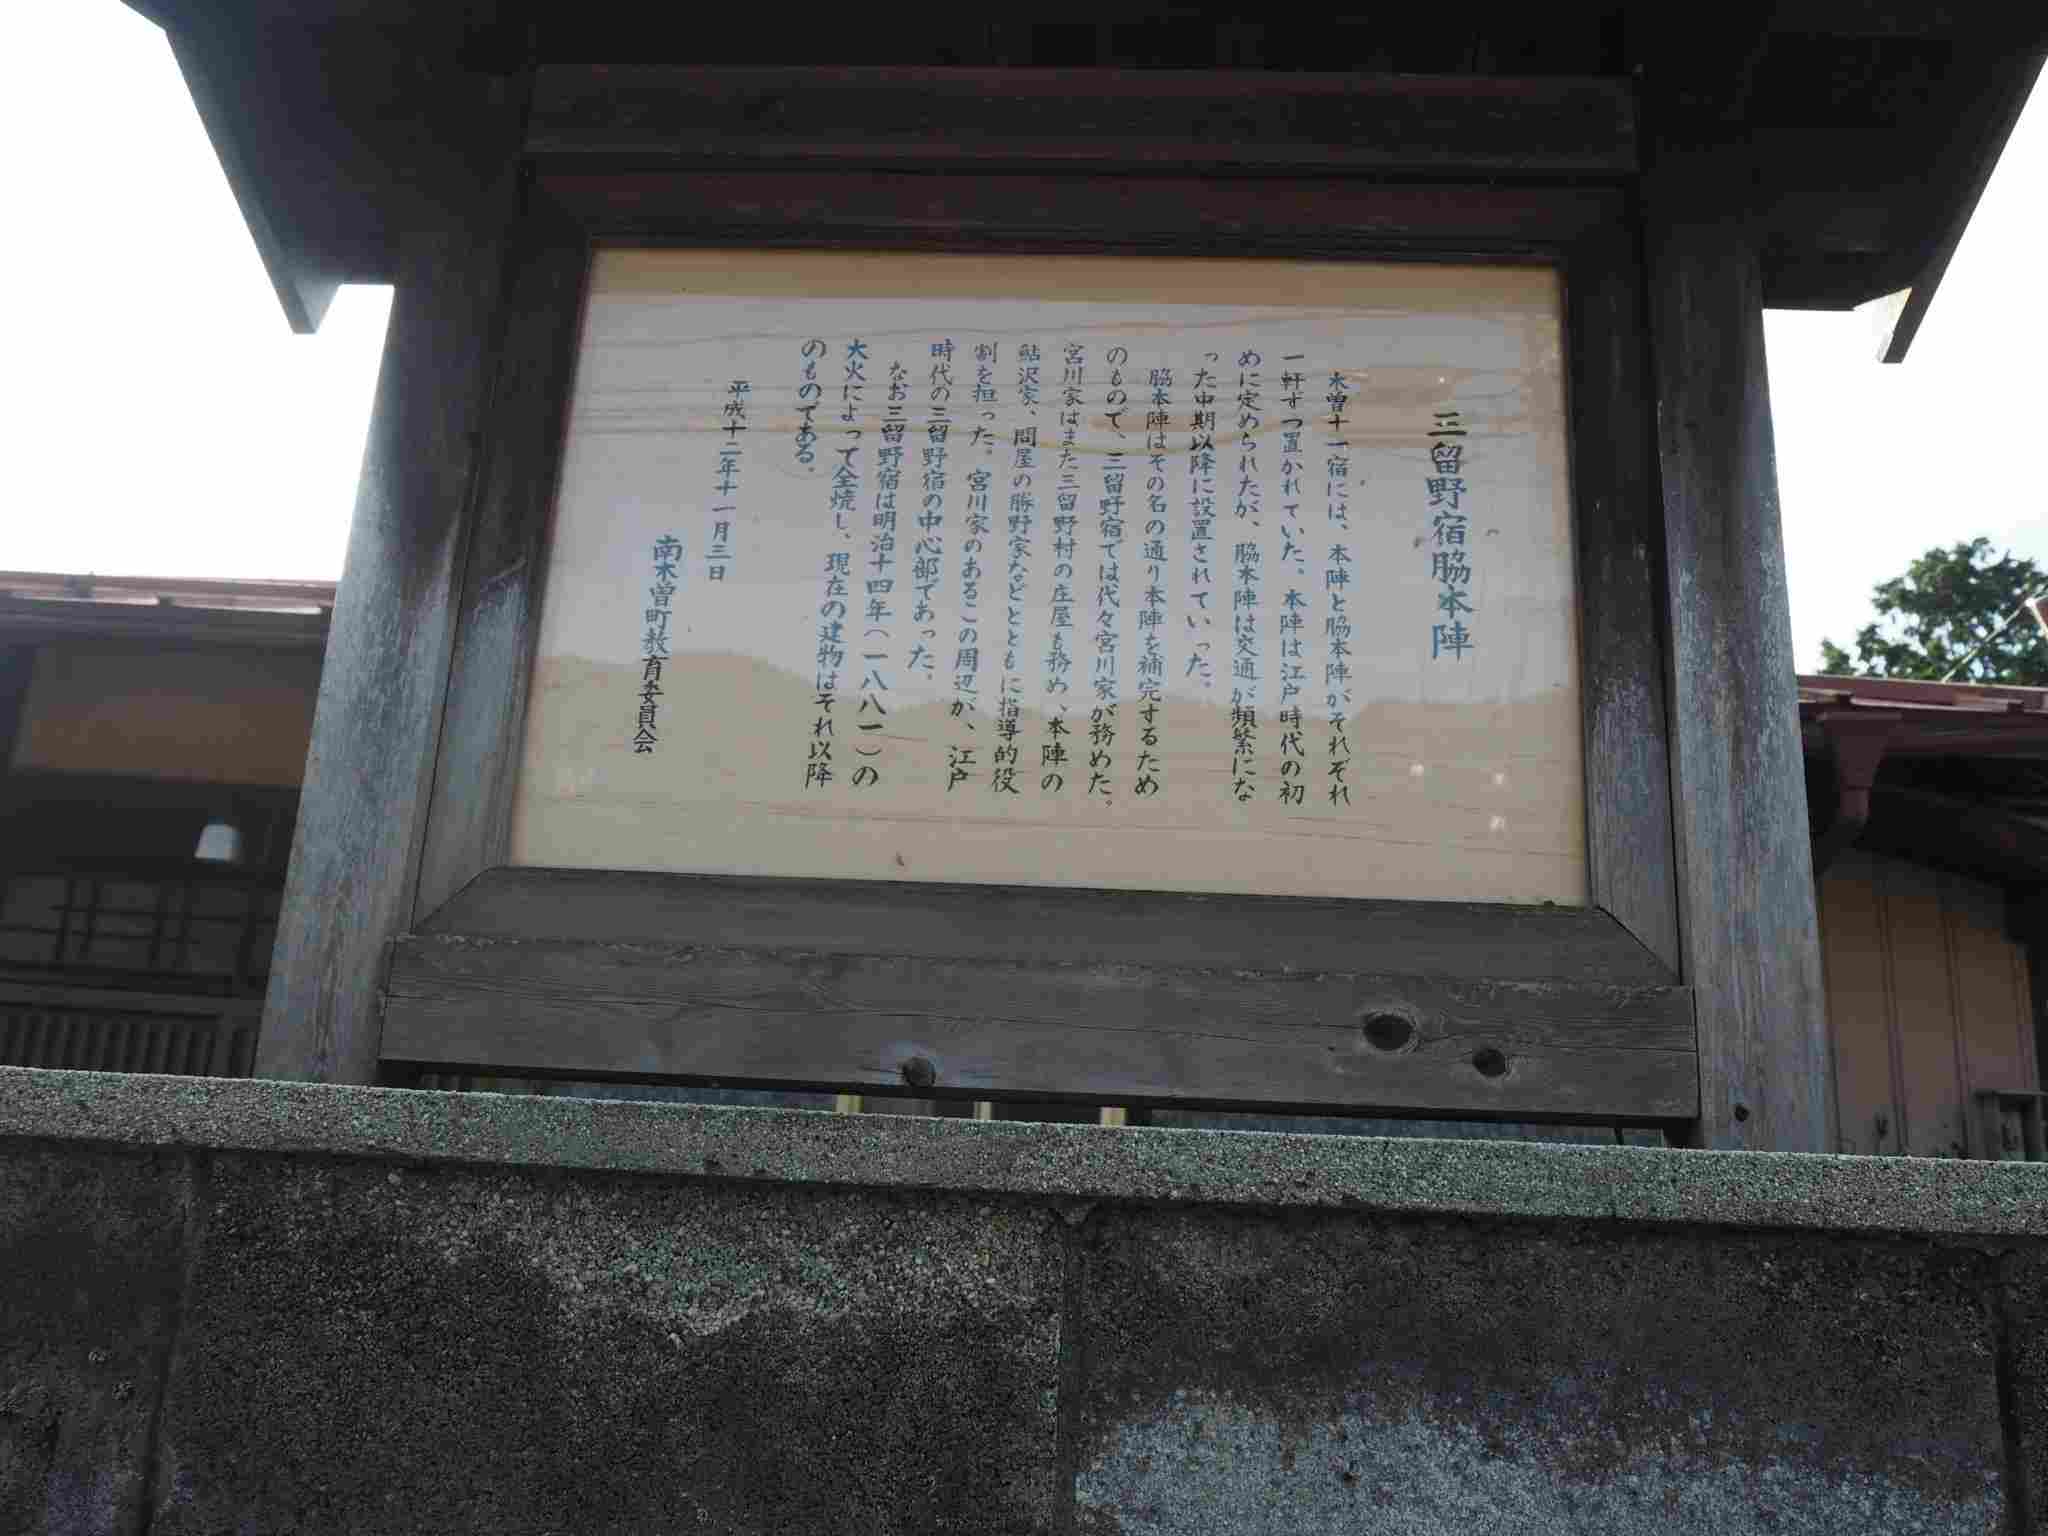 三留野宿脇本陣
木曽十一宿には、本陣と脇本陣がそれぞれ
一軒ずつ置かれていた。本陣は江戸時代の初
めに定められたが、脇本陣は交通が頻繁にな
った中期以降に設置されていった。
脇本陣はその名の通り本陣を補完するため
のもので、三留野宿では代々宮川家が務めた。
宮川家はまた三留野村の庄屋も務め、本陣の
鮎沢家、問屋の勝野家などとともに指導的役
割を担った。宮川家のあるこの周辺が、江戸
時代の三留野宿の中心部であった。
なお三留野宿は明治十四年(一八八一)の
大火によって全焼し、現在の建物はそれ以降
のものである。
平成十二年十一月三日
南木曽町教育委員会